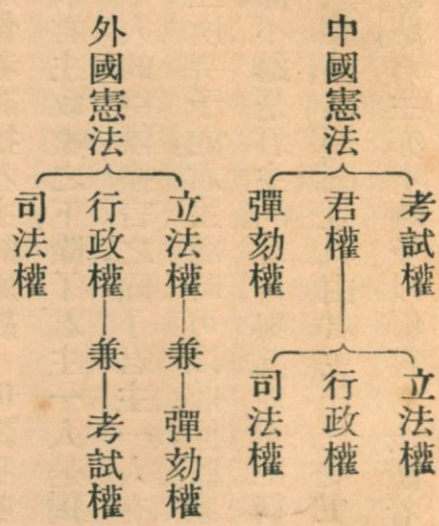 中國憲法
考試權
君權
立法權
行政權
司法權
彈劾權
外國憲法
立法權兼彈劾權
行政權兼考試權
司法權